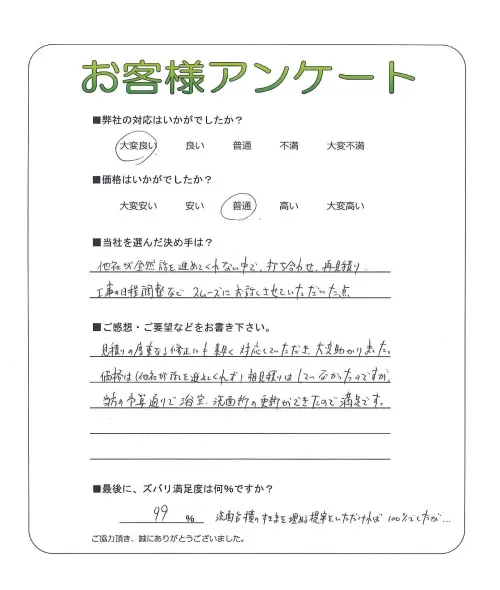 お客様アンケート
■弊社の対応はいかがでしたか？
大変良い 良い 普通 不満 大変不満
■価格はいかがでしたか？
大変安い 安い 普通 高い 大変高い
■当社を選んだ決め手は？
他社が全然話を進めてくれない中で、打ち合わせ、再見積り、
工事の日程調整など スムーズにお話しさせていただいた点
■ご感想・ご要望などをお書き下さい。
見積りの度重なる修正にも素早く対応していただき、大変助かりました。
価格は（他社が話しを進めてくれず）相見積りはしていなかったのですが、
当方の予算通りで浴室、洗面所の更新ができたので満足です。
■最後に、ズバリ満足度は何％ですか？
99 ％ 洗面台横のすきまを埋める提案をいただければ 100％でしたが…
ご協力頂き、誠にありがとうございました。